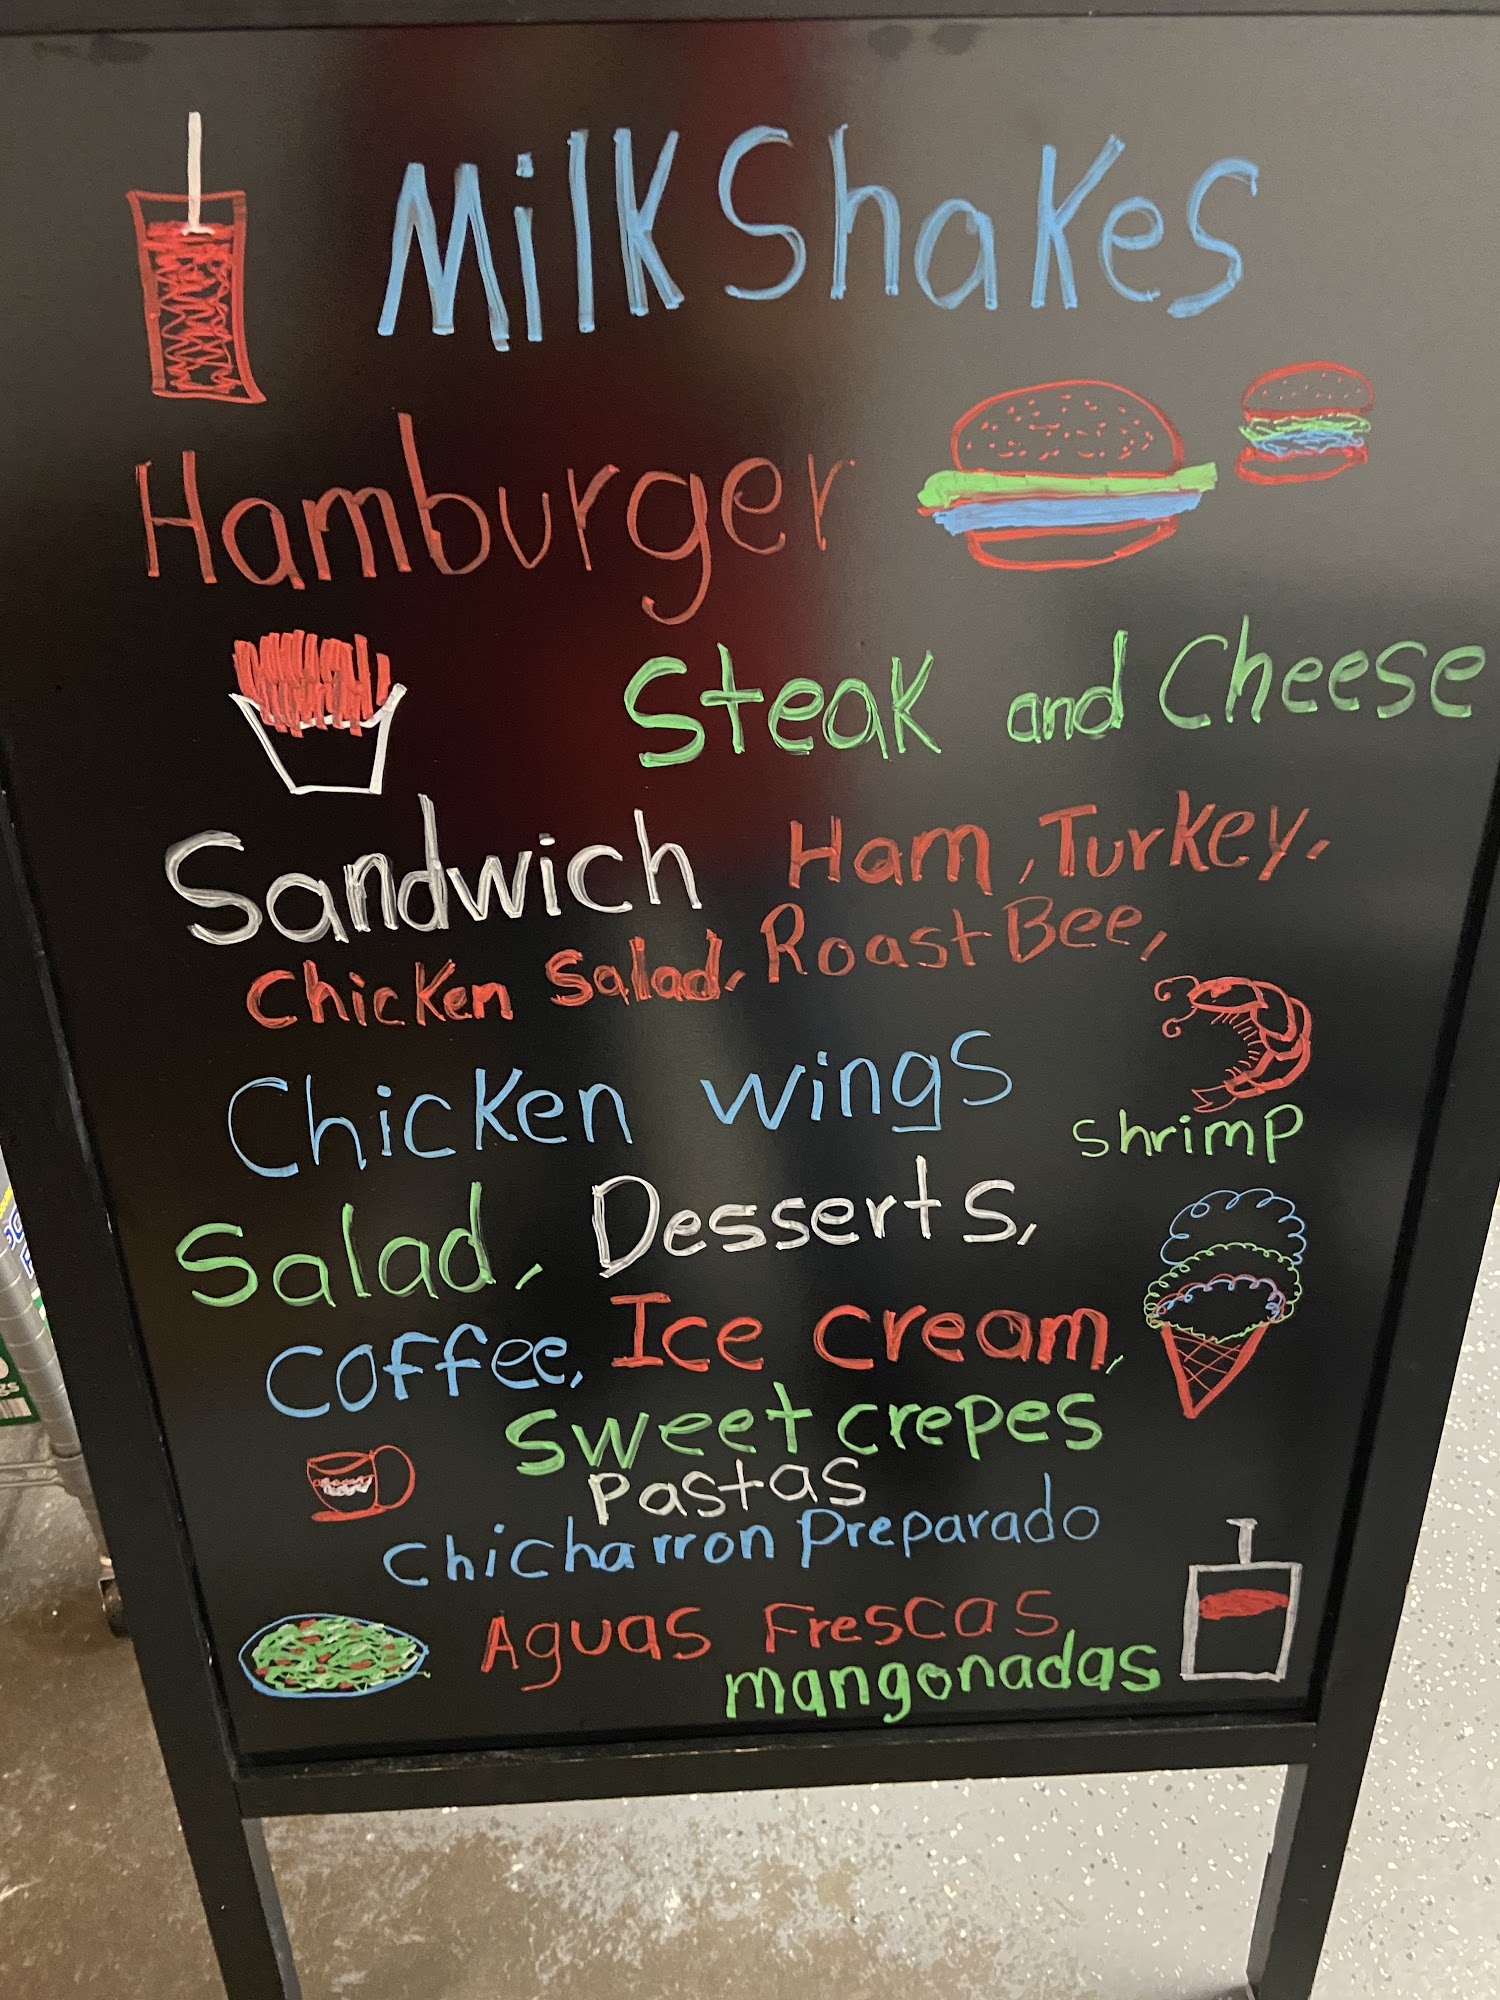 MilkShakes
Hamburger
Steak and Cheese
Sandwich Ham, Turkey,
Chicken Salad, Roast Bee,
Chicken wings
shrimp
Salad, Desserts,
Coffee, Ice cream,
Sweet crepes
Pastas
Chicharron Preparado
Aguas Frescas
mangonadas